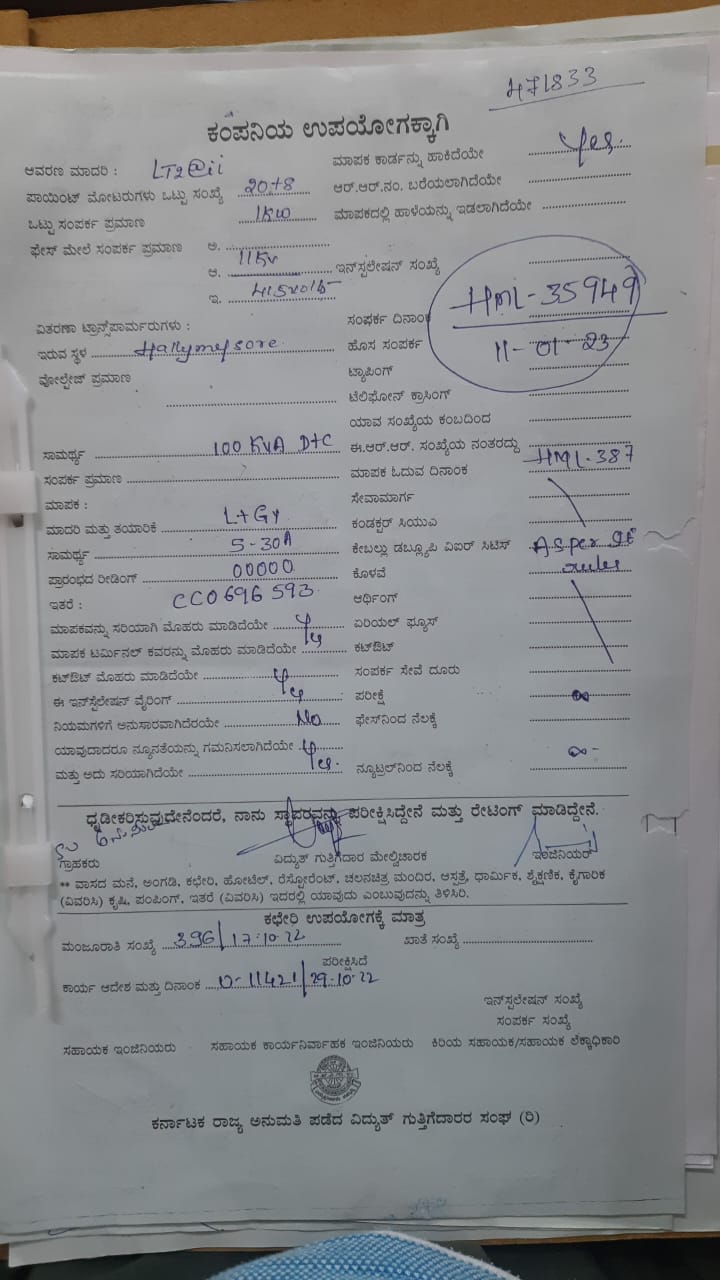 471833
ಕಂಪನಿಯ ಉಪಯೋಗಕ್ಕಾಗಿ
ಆವರಣ ಮಾದರಿ : LT2@ii ಮಾಪಕ ಕಾರ್ಡನ್ನು ಹಾಕಿದೆಯೇ Yes.
ಪಾಯಿಂಟ್ ಮೋಟರುಗಳು ಒಟ್ಟು ಸಂಖ್ಯೆ 20+8 ಆರ್.ಆರ್.ನಂ. ಬರೆಯಲಾಗಿದೆಯೇ
ಒಟ್ಟು ಸಂಪರ್ಕ ಪ್ರಮಾಣ 1KW ಮಾಪಕದಲ್ಲಿ ಹಾಳೆಯನ್ನು ಇಡಲಾಗಿದೆಯೇ
ಫೇಸ್ ಮೇಲೆ ಸಂಪರ್ಕ ಪ್ರಮಾಣ ಅ.
ಆ. 11KV ಇನ್‌ಸ್ಟಲೇಷನ್ ಸಂಖ್ಯೆ
ಇ. 415volt HML-35949
ವಿತರಣಾ ಟ್ರಾನ್ಸ್‌ಪಾರ್ಮರುಗಳು : ಸಂಪರ್ಕ ದಿನಾಂಕ
ಇರುವ ಸ್ಥಳ Hallymysore ಹೊಸ ಸಂಪರ್ಕ 11-01-23
ವೋಲ್ಟೇಜ್ ಪ್ರಮಾಣ ಟ್ಯಾಪಿಂಗ್
ಟೆಲಿಫೋನ್ ಕ್ರಾಸಿಂಗ್
ಯಾವ ಸಂಖ್ಯೆಯ ಕಂಬದಿಂದ
ಸಾಮರ್ಥ್ಯ 100 KVA DTC ಈ.ಆರ್.ಆರ್. ಸಂಖ್ಯೆಯ ನಂತರದ್ದು HML-387
ಸಂಪರ್ಕ ಪ್ರಮಾಣ ಮಾಪಕ ಓದುವ ದಿನಾಂಕ
ಮಾಪಕ : ಸೇವಾಮಾರ್ಗ
ಮಾದರಿ ಮತ್ತು ತಯಾರಿಕೆ L+Gy ಕಂಡಕ್ಟರ್ ಸಿಯುಎ
ಸಾಮರ್ಥ್ಯ 5-30A ಕೇಬಲ್ಲು ಡಬ್ಲ್ಯೂಪಿ ವಿಐರ್ ಸಿಟಿಸ್ As per IE
ಪ್ರಾರಂಭದ ರೀಡಿಂಗ್ 00000 ಕೊಳವೆ rules
ಇತರೆ : CC0696593 ಆರ್ಥಿಂಗ್
ಮಾಪಕವನ್ನು ಸರಿಯಾಗಿ ಮೊಹರು ಮಾಡಿದೆಯೇ ಏರಿಯಲ್ ಫ್ಯೂಸ್
ಮಾಪಕ ಟರ್ಮಿನಲ್ ಕವರನ್ನು ಮೊಹರು ಮಾಡಿದೆಯೇ Yes ಕಟ್‌ಔಟ್
ಕಟ್‌ಔಟ್ ಮೊಹರು ಮಾಡಿದೆಯೇ ಸಂಪರ್ಕ ಸೇವೆ ದೂರು
ಈ ಇನ್‌ಸ್ಟಲೇಷನ್ ವೈರಿಂಗ್ Yes ಪರೀಕ್ಷೆ ∞
ನಿಯಮಗಳಿಗೆ ಅನುಸಾರವಾಗಿದೆರಯೇ No ಫೇಸ್‌ನಿಂದ ನೆಲಕ್ಕೆ
ಯಾವುದಾದರೂ ನ್ಯೂನತೆಯನ್ನು ಗಮನಿಸಲಾಗಿದೆಯೇ ∞
ಮತ್ತು ಅದು ಸರಿಯಾಗಿದೆಯೇ Yes. ನ್ಯೂಟ್ರಲ್‌ನಿಂದ ನೆಲಕ್ಕೆ
ಧೃಡೀಕರಿಸುವುದೇನೆಂದರೆ, ನಾನು ಸ್ಥಾವರವನ್ನು ಪರೀಕ್ಷಿಸಿದ್ದೇನೆ ಮತ್ತು ರೇಟಿಂಗ್ ಮಾಡಿದ್ದೇನೆ.
ಗ್ರಾಹಕರು ವಿದ್ಯುತ್ ಗುತ್ತಿಗೆದಾರ ಮೇಲ್ವಿಚಾರಕ ಇಂಜಿನಿಯರ್
** ವಾಸದ ಮನೆ, ಅಂಗಡಿ, ಕಛೇರಿ, ಹೋಟೆಲ್, ರೆಸ್ಟೋರೆಂಟ್, ಚಲನಚಿತ್ರ ಮಂದಿರ, ಆಸ್ಪತ್ರೆ, ಧಾರ್ಮಿಕ, ಶೈಕ್ಷಣಿಕ, ಕೈಗಾರಿಕೆ
(ವಿವರಿಸಿ) ಕೃಷಿ, ಪಂಪಿಂಗ್, ಇತರೆ (ವಿವರಿಸಿ) ಇದರಲ್ಲಿ ಯಾವುದು ಎಂಬುವುದನ್ನು ತಿಳಿಸಿರಿ.
ಕಛೇರಿ ಉಪಯೋಗಕ್ಕೆ ಮಾತ್ರ
ಮಂಜೂರಾತಿ ಸಂಖ್ಯೆ 396/17-10-22 ಖಾತೆ ಸಂಖ್ಯೆ
ಪರೀಕ್ಷಿಸಿದೆ
ಕಾರ್ಯ ಆದೇಶ ಮತ್ತು ದಿನಾಂಕ 0-11421/29-10-22
ಇನ್‌ಸ್ಟಲೇಷನ್ ಸಂಖ್ಯೆ
ಸಂಪರ್ಕ ಸಂಖ್ಯೆ
ಸಹಾಯಕ ಇಂಜಿನಿಯರು ಸಹಾಯಕ ಕಾರ್ಯನಿರ್ವಾಹಕ ಇಂಜಿನಿಯರು ಕಿರಿಯ ಸಹಾಯಕ/ಸಹಾಯಕ ಲೆಕ್ಕಾಧಿಕಾರಿ
ಕರ್ನಾಟಕ ರಾಜ್ಯ ಅನುಮತಿ ಪಡೆದ ವಿದ್ಯುತ್ ಗುತ್ತಿಗೆದಾರರ ಸಂಘ (ರಿ)